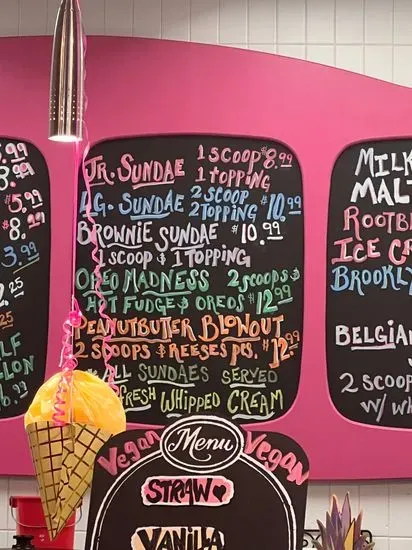 5.99
8.99
$5.99
$8.99
$3.99
.25
.25
JR. SUNDAE 1 SCOOP $8.99
1 TOPPING
LG. SUNDAE 2 SCOOP
2 TOPPING $10.99
BROWNIE SUNDAE $10.99
1 SCOOP & 1 TOPPING
OREO MADNESS 2 SCOOPS &
HOT FUDGE & OREOS $12.99
PEANUTBUTTER BLOWOUT
2 SCOOPS & REESES PCS. $12.99
ALL SUNDAES SERVED
FRESH WHIPPED CREAM
MILK
MAL
ROOTB
ICE CR
BROOKLY
BELGIA
2 SCOOP
W/ WH
Vegan Menu Vegan
STRAW
VANILLA